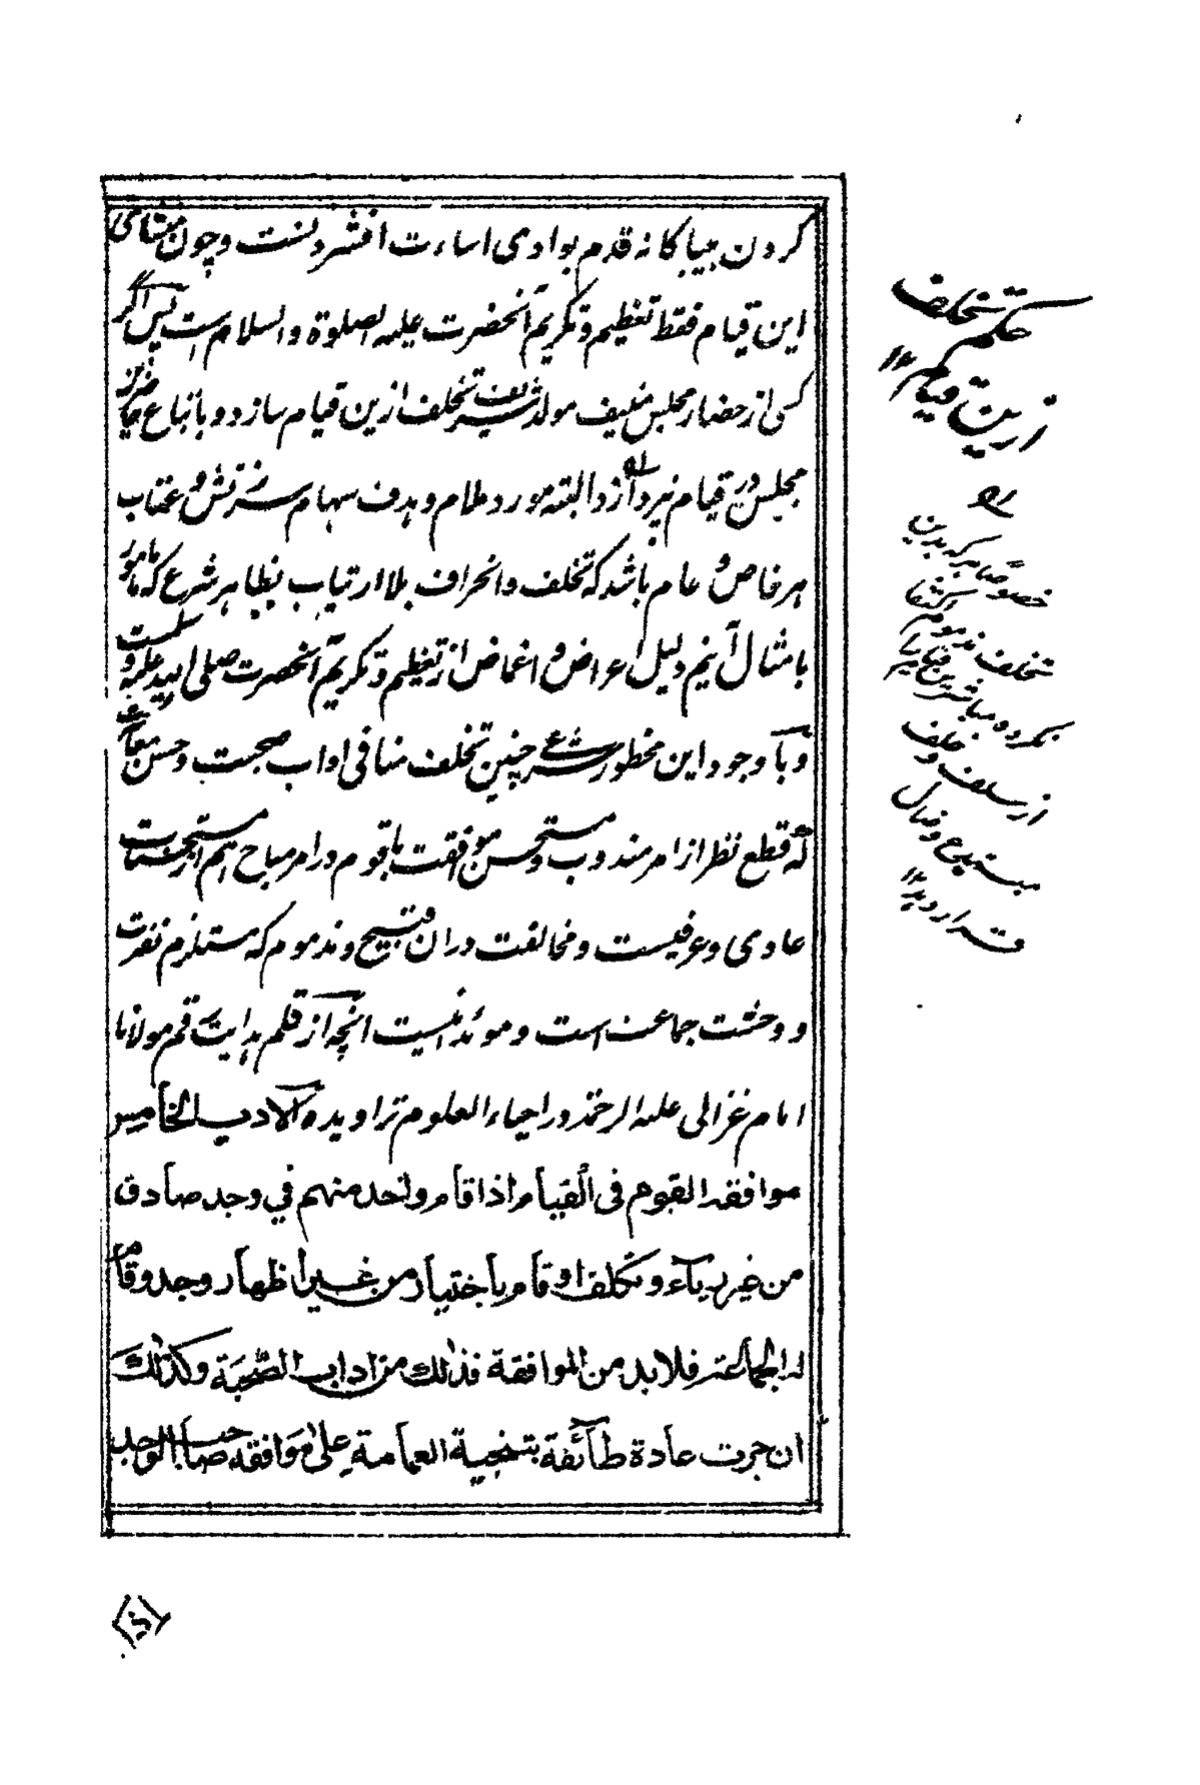 کردن بیباکانه قدم بوادی اساءت افشردنست و چون مبنای
این قیام فقط تعظیم و تکریم آنحضرت علیه الصلوة والسلام است پس اگر
کسی از حضار مجلس منیف مولد شریف تخلف ازین قیام سازد و باتباع حاضرین
مجلس در قیام نپردازد البته مورد ملام و هدف سهام سرزنش و عتاب
هر خاص و عام باشد که تخلف و انحراف بلا ارتیاب بظاهر شرع که مامور
بامثال آنیم دلیل اعراض و اغماض از تعظیم و تکریم آنحضرت صلی الله علیه وسلمست
و با وجود این محظور شرعی چنین تخلف منافی اداب صحبت و حسن معاشرت
که قطع نظر از امر مندوب و مستحسن موافقت با قوم در امر مباح هم از مستحسنات
عادی و عرفیست و مخالفت دران قبیح و مذموم که مستلزم نفرت
و وحشت جماعت است و موئد اینست انچه از قلم هدایت رقم مولانا
امام غزالی علیه الرحمة در احیاء العلوم تراویده الادب الخامس
موافقة القوم فی القیام اذا قام واحد منهم في وجد صادق
من غیر ریآء و تکلف او قام باختیار من غیر اظهار وجد وقام
له الجماعة فلا بد من الموافقة فذلك من اداب الصحبة وکذلك
ان جرت عادة طآئفة بتنحیة العمامة علی موافقة صاحب الوجد
حکم تخلف
ازین قیام
خصوصا هرکه بدین
تخلف مذموم اکتفا
نکرده مباشرین
از سلف و خلف
مبتدع و ضال
قرار دید